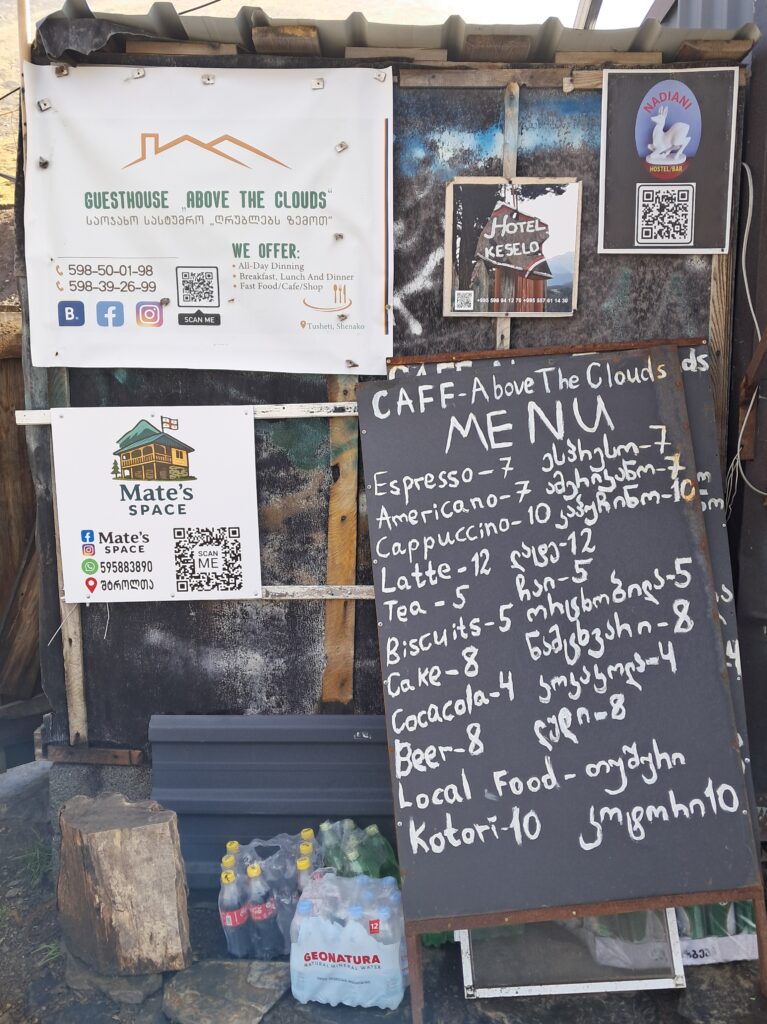 GUESTHOUSE „ABOVE THE CLOUDS“
საოჯახო სასტუმრო „ღრუბლებს ზემოთ“
WE OFFER:
• All-Day Dining
• Breakfast, Lunch And Dinner
• Fast Food/Cafe/Shop
598-50-01-98
598-39-26-99
B.
SCAN ME
Tusheti, Shenako
HOTEL
KESELO
NADIANI
HOSTEL/BAR
Mate's
SPACE
Mate's
SPACE
595883890
შტროლთა
SCAN
ME
CAFE-Above The Clouds
MENU
Espresso-7 ესპრესო-7
Americano-7 ამერიკანო-7
Cappuccino-10 კაპუჩინო-10
Latte-12 ლატე-12
Tea-5 ჩაი-5
Biscuits-5 ორცხობილა-5
Cake-8 ნამცხვარი-8
Cocacola-4 კოკაკოლა-4
Beer-8 ლუდი-8
Local Food-თუშური
Kotori-10 კოტორი10
12
GEONATURA
NATURAL MINERAL WATER